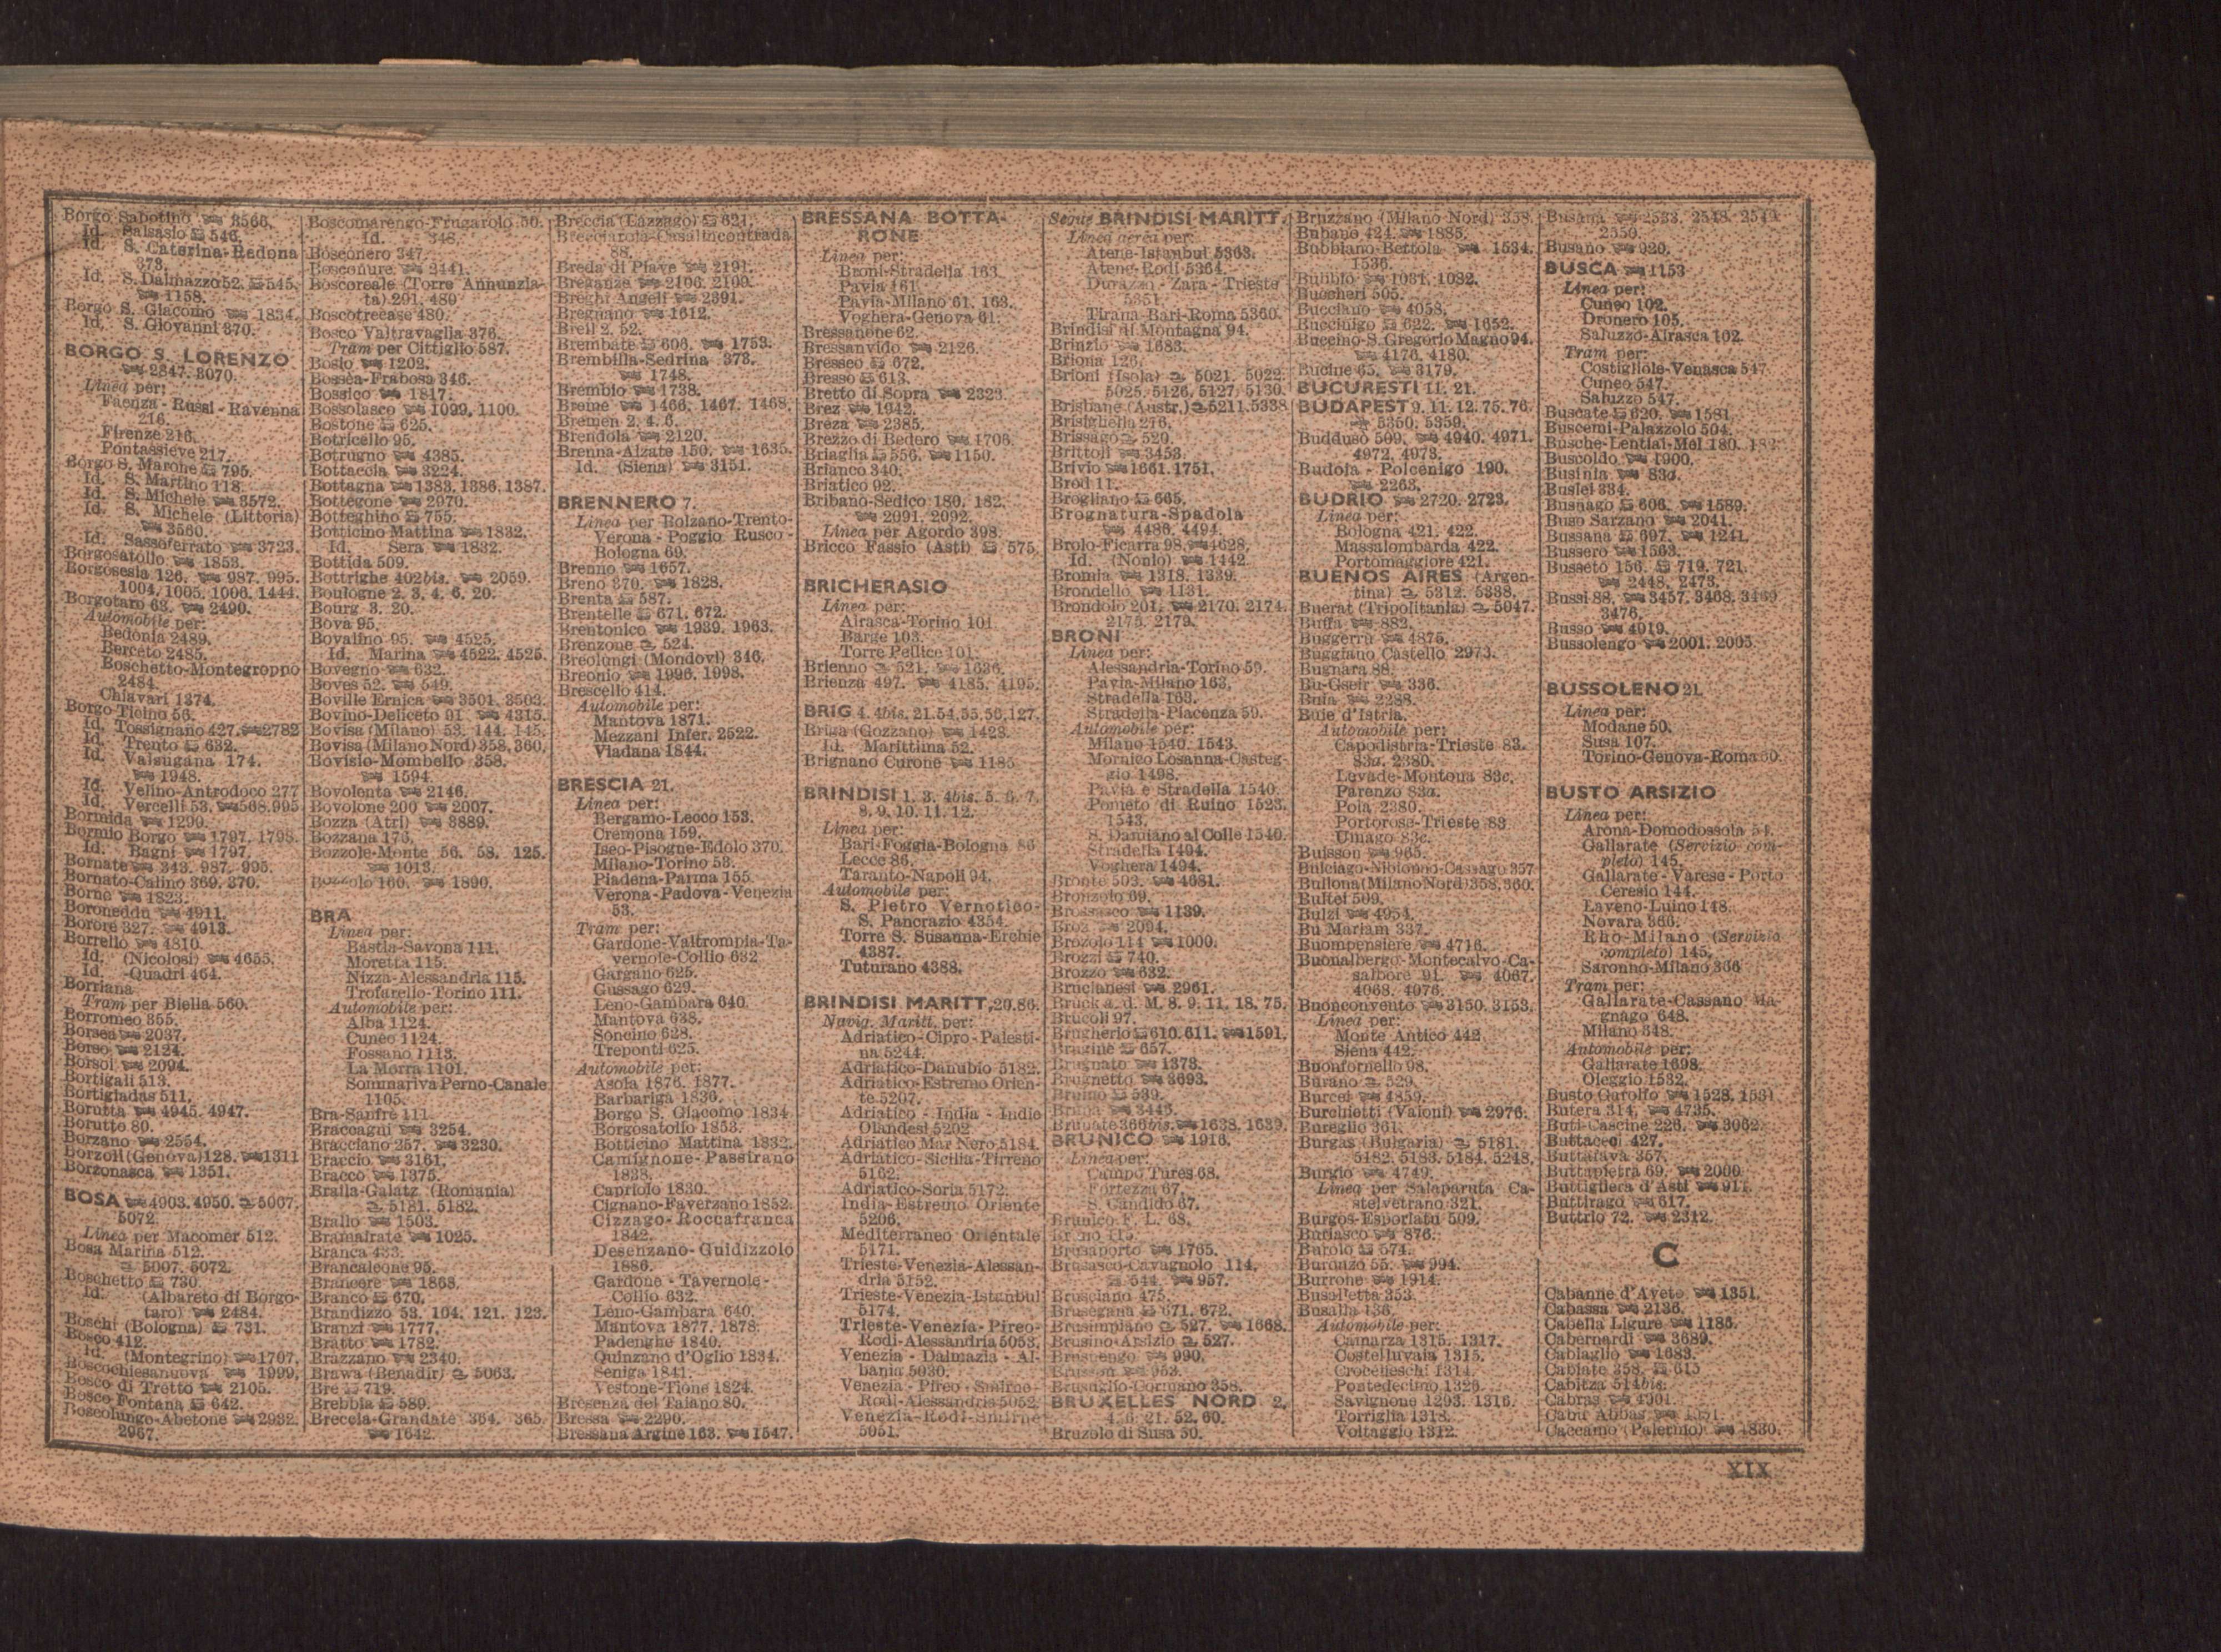 Borgo Sabotino 3566.
Id. Salsasio 546.
Id. S. Caterina-Redona
373.
Id. S. Dalmazzo 52. 545.
1158.
Borgo S. Giacomo 1834.
Id. S. Giovanni 370.
BORGO S. LORENZO
2847. 3070.
Linea per:
Faenza-Russi-Ravenna
216.
Firenze 216.
Pontassieve 217.
Borgo S. Marone 795.
Id. S. Martino 118.
Id. S. Michele 3572.
Id. S. Michele (Littoria)
3560.
Id. Sassoferrato 3723.
Borgosatollo 1853.
Borgosesia 126. 987. 995.
1004. 1005. 1006. 1444.
Borgotaro 63. 2490.
Automobile per:
Bedonia 2489.
Berceto 2485.
Boschetto-Montegroppo
2484.
Chiavari 1374.
Borgo Ticino 56.
Id. Tossignano 427. 2782
Id. Trento 632.
Id. Valsugana 174.
1948.
Id. Velino-Antrodoco 277
Id. Vercelli 53. 568.995
Bormida 1299.
Bormio Borgo 1797. 1798.
Id. Bagni 1797.
Bornate 343. 987. 995.
Bornato-Calino 369. 370.
Borno 1823.
Boroneddu 4911.
Borore 327. 4913.
Borrello 4810.
Id. (Nicolosi) 4655.
Id. -Quadri 464.
Borriana
Tram per Biella 560.
Borromeo 355.
Borsea 2037.
Borso 2124.
Borsoi 2094.
Bortigali 513.
Bortigiadas 511.
Borutta 4945. 4947.
Borutto 80.
Borzano 2554.
Borzoli (Genova) 128. 1311
Borzonasca 1351.
BOSA 4903. 4950. 5067.
5072.
Linea per Macomer 512.
Bosa Marina 512.
5007. 5072.
Boschetto 730.
Id. (Albareto di Borgo-
taro) 2484.
Boschi (Bologna) 731.
Bosco 412.
Id. (Montegrino) 1707.
Boscochiesanuova 1999.
Bosco di Tretto 2105.
Bosco Fontana 642.
Boscolungo-Abetone 2932.
2967.
Boscomarengo-Frugarolo 50.
Id. 348.
Bosconero 347.
Bosconure 2441.
Boscoreale (Torre Annunzia-
ta) 291. 480
Boscotrecase 480.
Bosco Valtravaglia 376.
Tram per Cittiglio 587.
Bosio 1202.
Bossea-Frabosa 346.
Bossico 1817.
Bossolasco 1099. 1100.
Bostone 625.
Botricello 95.
Botrugno 4385.
Bottaccia 3224.
Bottagna 1383. 1386. 1387.
Bottegone 2970.
Botteghino 755.
Botticino Mattina 1832.
Id. Sera 1832.
Bottida 509.
Bottrighe 402bis. 2059.
Boulogne 2. 3. 4. 6. 20.
Bourg 3. 20.
Bova 95.
Bovalino 95. 4525.
Id. Marina 4522. 4525.
Bovegno 632.
Boves 52. 549.
Boville Ernica 3501. 3503.
Bovino-Deliceto 91. 4315.
Bovisa (Milano) 53. 144. 145.
Bovisa (Milano Nord) 358. 360.
Bovisio-Mombello 358.
1594.
Bovolenta 2146.
Bovolone 200 2007.
Bozza (Atri) 3889.
Bozzana 176.
Bozzole-Monte 56. 58. 125.
1013.
Bozzolo 160. 1890.
BRA
Linea per:
Bastia-Savona 111.
Moretta 115.
Nizza-Alessandria 115.
Trofarello-Torino 111.
Automobile per:
Alba 1124.
Cuneo 1124.
Fossano 1113.
La Morra 1101.
Sommariva Perno-Canale
1105.
Bra-Sanfrè 111.
Braccagni 3254.
Bracciano 257. 3230.
Braccio 3161.
Bracco 1375.
Braila-Galatz (Romania)
5181. 5182.
Brallo 1503.
Bramairate 1025.
Branca 433.
Brancaleone 95.
Brancere 1868.
Branco 670.
Brandizzo 53. 104. 121. 123.
Branzi 1777.
Bratto 1782.
Brazzano 2340.
Brawa (Benadir) 5063.
Bre 719.
Brebbia 589.
Breccia-Grandate 364. 365.
1642.
Breccia (Lazzago) 621.
Brecciarola-Casalincontrada
88.
Breda di Piave 2191.
Breganze 2106. 2109.
Breghi Angeli 2391.
Bregnano 1612.
Breil 2. 52.
Brembate 606. 1753.
Brembilla-Sedrina 373.
1748.
Brembio 1738.
Breme 1466. 1467. 1468.
Bremen 2. 4. 6.
Brendola 2120.
Brenna-Alzate 150. 1635.
Id. (Siena) 3151.
BRENNERO 7.
Linea per Bolzano-Trento-
Verona - Poggio Rusco -
Bologna 69.
Brenno 1657.
Breno 370. 1828.
Brenta 587.
Brentelle 671. 672.
Brentonico 1939. 1963.
Brenzone 524.
Breolungi (Mondovì) 346.
Breonio 1996. 1998.
Brescello 414.
Automobile per:
Mantova 1871.
Mezzani Infer. 2522.
Viadana 1844.
BRESCIA 21.
Linea per:
Bergamo-Lecco 153.
Cremona 159.
Iseo-Pisogne-Edolo 370.
Milano-Torino 53.
Piadena-Parma 155.
Verona-Padova-Venezia
53.
Tram per:
Gardone-Valtrompia-Ta-
vernole-Collio 632
Gargano 625.
Gussago 629.
Leno-Gambara 640.
Mantova 638.
Soncino 628.
Treponti 625.
Automobile per:
Asola 1876. 1877.
Barbariga 1836.
Borgo S. Giacomo 1834
Borgosatollo 1853.
Botticino Mattina 1832.
Camignone-Passirano
1838.
Capriolo 1830.
Cignano-Faverzano 1852.
Cizzago-Roccafranca
1842.
Desenzano-Guidizzolo
1886.
Gardone - Tavernole -
Collio 632.
Leno-Gambara 640.
Mantova 1877. 1878.
Padenghe 1840.
Quinzano d'Oglio 1834.
Seniga 1841.
Vestone-Tione 1824.
Bresenza del Taiano 80.
Bressa 2290.
Bressana Argine 163. 1547.
BRESSANA BOTTA-
RONE
Linea per:
Broni-Stradella 163.
Pavia 161.
Pavia-Milano 61. 163.
Voghera-Genova 61.
Bressanone 62.
Bressanvido 2126.
Bresseo 672.
Bresso 613.
Bretto di Sopra 2323.
Brez 1942.
Breza 2385.
Brezzo di Bedero 1706.
Briaglia 556. 1150.
Brianco 340.
Briatico 92.
Bribano-Sedico 180. 182.
2091. 2092.
Linea per Agordo 398.
Bricco Fassio (Asti) 575.
BRICHERASIO
Linea per:
Airasca-Torino 101.
Barge 103.
Torre Pellice 101.
Brienno 521. 1636.
Brienza 497. 4185. 4195.
BRIG 4. 4bis. 21.54.55.56.127.
Briga (Gozzano) 1428.
Id. Marittima 52.
Brignano Curone 1185.
BRINDISI 1. 3. 4bis. 5. 6. 7.
8. 9. 10. 11. 12.
Linea per:
Bari-Foggia-Bologna 86
Lecce 86.
Taranto-Napoli 94.
Automobile per:
S. Pietro Vernotico-
S. Pancrazio 4354.
Torre S. Susanna-Erchie
4387.
Tuturano 4388.
BRINDISI MARITT. 20.86.
Navig. Maritt. per:
Adriatico-Cipro-Palesti-
na 5244.
Adriatico-Danubio 5182.
Adriatico-Estremo Orien-
te 5207.
Adriatico - India - Indie
Olandesi 5202.
Adriatico Mar Nero 5184.
Adriatico-Sicilia-Tirreno
5162.
Adriatico-Soria 5172.
India-Estremo Oriente
5206.
Mediterraneo Orientale
5171.
Trieste-Venezia-Alessan-
dria 5152.
Trieste-Venezia-Istanbul
5174.
Trieste-Venezia-Pireo-
Rodi-Alessandria 5053.
Venezia - Dalmazia - Al-
bania 5030.
Venezia - Pireo - Smirne -
Rodi-Alessandria 5052.
Venezia-Rodi-Smirne
5051.
Segue BRINDISI MARITT.
Linea aerea per:
Atene-Istanbul 5363.
Atene-Rodi 5364.
Durazzo - Zara - Trieste
5351.
Tirana-Bari-Roma 5360.
Brindisi di Montagna 94.
Brinzio 1683.
Briona 126.
Brioni (Isola) 5021. 5022.
5025. 5126. 5127. 5130.
Brisbane (Austr.) 5211.5338
Brisighella 276.
Brissago 520.
Brittoli 3453.
Brivio 1661. 1751.
Brod 11.
Brogliano 665.
Brognatura-Spadola
4486. 4494.
Brolo-Ficarra 98. 4628.
Id. (Nonio) 1442.
Bromia 1318. 1339.
Brondello 1131.
Brondolo 201. 2170. 2174.
2175. 2179.
BRONI
Linea per:
Alessandria-Torino 59.
Pavia-Milano 163.
Stradella 163.
Stradella-Piacenza 59.
Automobile per:
Milano 1540. 1543.
Mornico Losanna-Casteg-
gio 1498.
Pavia e Stradella 1540.
Pometo di Ruino 1523.
1543.
S. Damiano al Colle 1540.
Stradella 1494.
Voghera 1494.
Bronte 503. 4681.
Bronzolo 69.
Brossasco 1139.
Broz 2094.
Brozolo 114 1000.
Brozzi 740.
Brozzo 632.
Brucianesi 2961.
Bruck a. d. M. 8. 9. 11. 18. 75.
Brucoli 97.
Brugherio 610. 611. 1591.
Brugine 657.
Brugnato 1378.
Brugnetto 3693.
Bruino 539.
Bruna 3446.
Brunate 366bis. 1638. 1639.
BRUNICO 1916.
Linea per:
Campo Tures 68.
Fortezza 67.
S. Candido 67.
Brunico F. L. 68.
Bruno 115.
Brusaporto 1765.
Brusasco-Cavagnolo 114.
544. 957.
Brusciano 475.
Brusegana 671. 672.
Brusimpiano 527. 1668.
Brusino-Arsizio 527.
Brusnengo 990.
Brusson 963.
Brusuglio-Cormano 358.
BRUXELLES NORD 2.
4. 6. 21. 52. 60.
Bruzolo di Susa 50.
Bruzzano (Milano Nord) 358.
Bubano 424. 1885.
Bubbiano-Bettola 1534.
1536.
Bubbio 1031. 1082.
Buccheri 505.
Bucciano 4058.
Buccinigo 622. 1652.
Buccino-S. Gregorio Magno 94.
4176. 4180.
Bucine 65. 3179.
BUCURESTI 11. 21.
BUDAPEST 9. 11. 12. 75. 76.
5350. 5359.
Buddusò 509. 4940. 4971.
4972. 4973.
Budoia - Polcenigo 190.
2263.
BUDRIO 2720. 2723.
Linea per:
Bologna 421. 422.
Massalombarda 422.
Portomaggiore 421.
BUENOS AIRES (Argen-
tina) 5312. 5338.
Buerat (Tripolitania) 5047.
Buffa 882.
Buggerru 4875.
Buggiano Castello 2973.
Bugnara 88.
Bu-Gseir 336.
Buia 2288.
Buie d'Istria.
Automobile per:
Capodistria-Trieste 83.
83a. 2380.
Levade-Montona 83c.
Parenzo 83a.
Pola 2380.
Portorose-Trieste 83.
Umago 83c.
Buisson 965.
Bulciago-Nibionno-Cassago 357
Bullona (Milano Nord) 358.360.
Bultei 509.
Bulzi 4954.
Bu Mariam 337.
Buompensiere 4716.
Buonalbergo-Montecalvo-Ca-
salbore 91. 4067.
4068. 4076.
Buonconvento 3150. 3153.
Linea per:
Monte Antico 442.
Siena 442.
Buonfornello 98.
Burano 529.
Burcei 4859.
Burchietti (Vaioni) 2976.
Bureglio 361.
Burgas (Bulgaria) 5181.
5182. 5183. 5184. 5248.
Burgio 4749.
Linea per Salaparuta Ca-
stelvetrano 321.
Burgos-Esporlatu 509.
Buriasco 876.
Burolo 574.
Buronzo 55. 994.
Burrone 1914.
Buscoletta 353.
Busalla 136.
Automobile per:
Camarza 1315. 1317.
Costelluvaia 1315.
Crocefieschi 1314.
Pontedecimo 1326.
Savignone 1293. 1316.
Torriglia 1318.
Voltaggio 1312.
Busana 2533. 2548. 2549.
2550.
Busano 920.
BUSCA 1153
Linea per:
Cuneo 102.
Dronero 105.
Saluzzo-Airasca 102.
Tram per:
Costigliole-Venasca 547
Cuneo 547.
Saluzzo 547.
Buscate 620. 1581.
Buscemi-Palazzolo 504.
Busche-Lentiai-Mel 180. 182
Buscoldo 1900.
Businia 83a.
Buslei 334.
Busnago 606. 1589.
Buso Sarzano 2041.
Bussana 697. 1241.
Bussero 1563.
Busseto 156. 719. 721.
2448. 2473.
Bussi 88. 3457. 3468. 3469
3476.
Busso 4019.
Bussolengo 2001. 2005
BUSSOLENO 21.
Linea per:
Modane 50.
Susa 107.
Torino-Genova-Roma 50.
BUSTO ARSIZIO
Linea per:
Arona-Domodossola 54.
Gallarate (Servizio com-
pleto) 145.
Gallarate - Varese - Porto
Ceresio 144.
Laveno-Luino 148.
Novara 366.
Rho-Milano (Servizio
completo) 145.
Saronno-Milano 366
Tram per:
Gallarate-Cassano Ma-
gnago 648.
Milano 648.
Automobile per:
Gallarate 1698.
Oleggio 1532.
Busto Garolfo 1528. 1531
Butera 314. 4735.
Buti-Cascine 226. 3062
Buttaceci 427.
Buttafava 357.
Buttapietra 69. 2000
Buttigliera d'Asti 911.
Buttirago 617.
Buttrio 72. 2312.
C
Cabanne d'Aveto 1351.
Cabassa 2136.
Cabella Ligure 1186.
Cabernardi 3689.
Cabiaglio 1683.
Cabiate 358. 615
Cabitza 514bis.
Cabras 4901.
Cabu Abbas 4951.
Caccamo (Palermo) 4830.
XIX